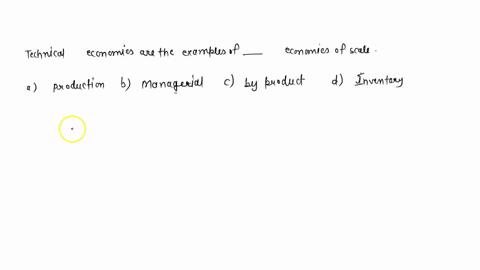 Technical economies are the examples of ___ economies of scale.
a) production b) Managerial c) by product d) Inventory